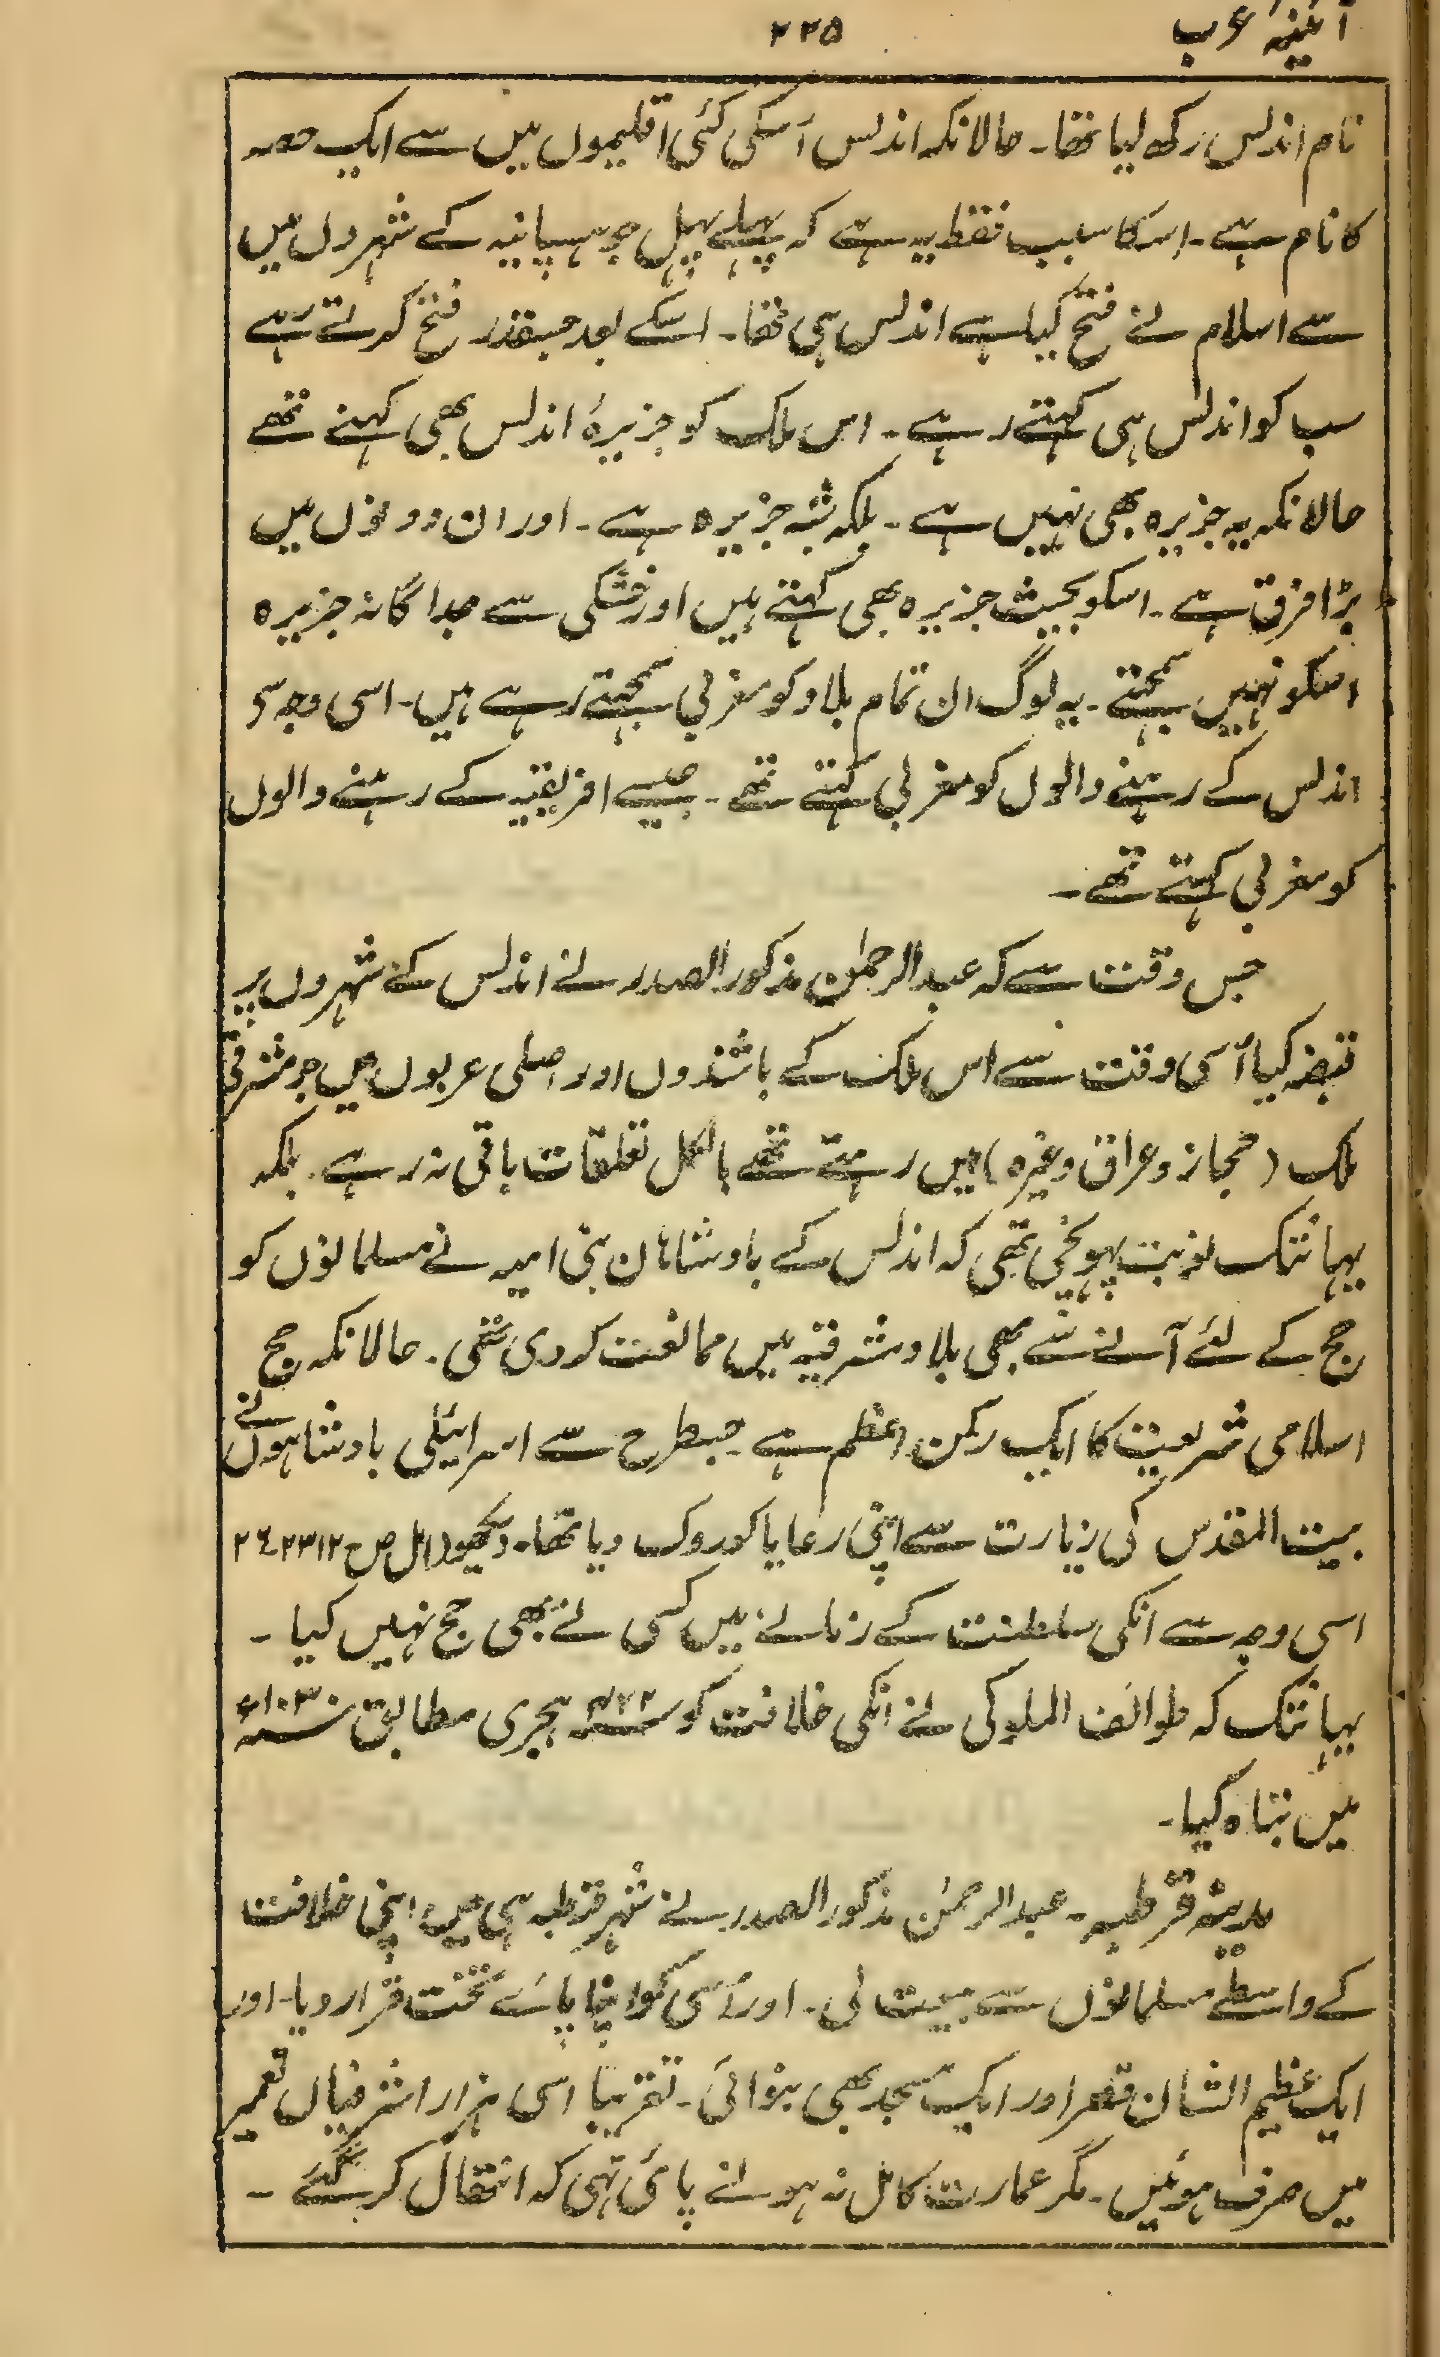 آئینۂ عرب
۲۲۵
نام اندلس رکھ لیا تھا۔ حالانکہ اندلس اُسکی کئی اقلیموں میں سے ایک حصہ
کا نام ہے۔ اسکا سبب فقط یہ ہے کہ پہلے پہل جو ہسپانیہ کے شہروں میں
سے اسلام نے فتح کیا ہے اندلس ہی تھا۔ اسکے بعد جسقدر فتح کرتے رہے
سب کو اندلس ہی کہتے رہے۔ اس ملک کو جزیرۂ اندلس بھی کہتے تھے
حالانکہ یہ جزیرہ بھی نہیں ہے۔ بلکہ شبہ جزیرہ ہے۔ اور ان دونوں میں
بڑا فرق ہے۔ اسکو بحیث جزیرہ بھی کہتے ہیں اور خشکی سے جداگانہ جزیرہ
اسکو نہیں سمجھتے۔ یہ لوگ ان تمام بلاد کو مغربی سمجھتے رہے ہیں۔ اسی وجہ سی
اندلس کے رہنے والوں کو مغربی کہتے تھے۔ جیسے افریقیہ کے رہنے والوں
کو مغربی کہتے تھے۔
جس وقت سے کہ عبدالرحمٰن مذکور الصدر نے اندلس کے شہروں پر
قبضہ کیا اُسی وقت سے اس ملک کے باشندوں اور اصلی عربوں میں جو مشرقی
ملک (حجاز و عراق وغیرہ) میں رہتے تھے بالکل تعلقات باقی نہ رہے۔ بلکہ
یہانتک نوبت پہونچی تھی کہ اندلس کے بادشاہان بنی امیہ نے مسلمانوں کو
حج کے لئے آنے سے بھی بلاد مشرقیہ میں ممانعت کر دی تھی۔ حالانکہ حج
اسلامی شریعت کا ایک رکن اعظم ہے جسطرح سے اسرائیلی بادشاہوں نے
بیت المقدس کی زیارت سے اپنی رعایا کو روک دیا تھا۔ دیکھو
اسی وجہ سے انکی سلطنت کے زمانے میں کسی نے بھی حج نہیں کیا۔
یہانتک کہ طوائف الملوکی نے انکی خلافت کو ۴۲۲ ہجری مطابق ۱۰۳۰ء
میں تباہ کیا۔
مدینہ قرطبہ۔ عبدالرحمٰن مذکور الصدر نے شہر قرطبہ ہی میں اپنی خلافت
کے واسطے مسلمانوں سے بیعت لی۔ اور اُسی کو اپنا پائے تخت قرار دیا۔ اور
ایک عظیم الشان قصر اور ایک مسجد بھی بنوائی۔ تقریباً اسی ہزار اشرفیاں تعمیر
میں صرف ہوئیں۔ مگر عمارت کامل نہ ہونے پائی تھی کہ انتقال کر گئے۔